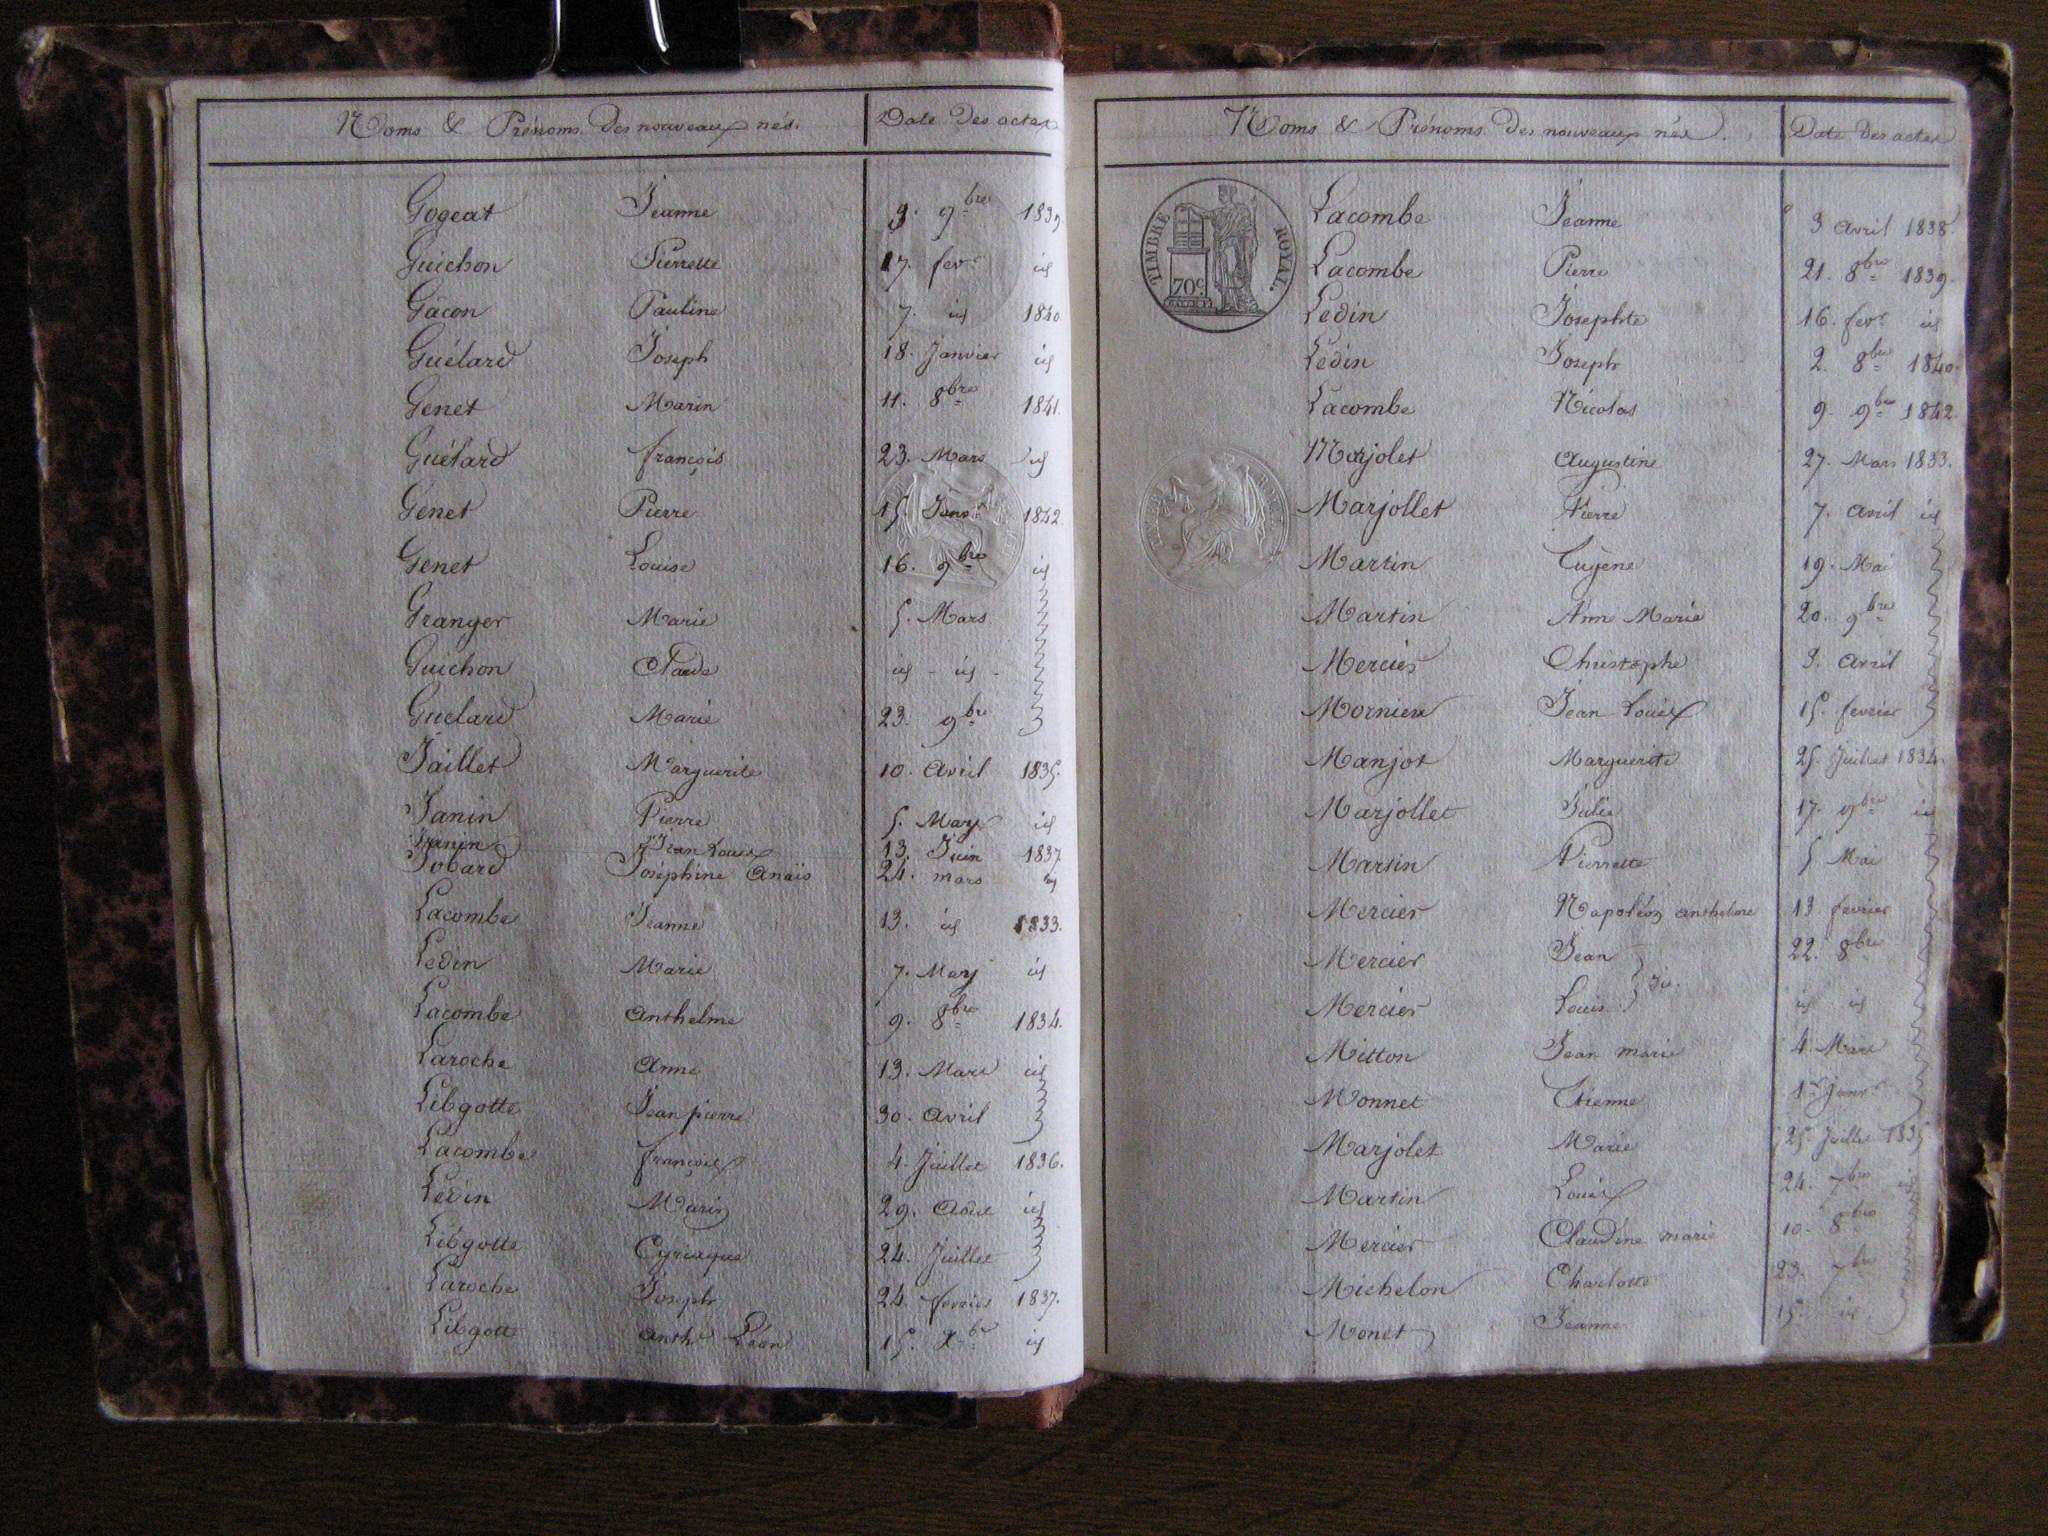 Noms & Prénoms des nouveaux nés. Date des actes
Gogeat Jeanne 9. 9bre 1839
Guichon Pierrette 17. fevr id
Gâcon Pauline 7. id 1840
Guélard Joseph 18. Janvier id
Genet Marin 11. 8bre 1841.
Guélard françois 23. Mars id
Genet Pierre 15 Janvr 1842.
Genet Louise 16. 9bre id
Granger Marie 5. Mars
Guichon Claude id - id -
Guélard Marie 23. 9bre
Jaillet Marguerite 10. Avril 1835.
Janin Pierre 5. May id
Janin Jean Louis 13. Juin 1837
Jobard Joséphine Anaïs 24. mars id
Lacombe Jeanne 13. id 1833.
Ledin Marie 7. May id
Lacombe Anthelme 9. 8bre 1834.
Laroche Anne 13. Mars id
Libgotte Jean pierre 30. Avril
Lacombe françois 4. Juillet 1836.
Ledin Marin 29. Aout id
Libgotte Cyriaque 24. Juillet
Laroche Joseph 24. fevrier 1837.
Libgott Anthe Léon 15. Xbre id
Noms & Prénoms des nouveaux nés. Date des actes
TIMBRE ROYAL.
70c
Lacombe Jeanne 3 Avril 1838.
Lacombe Pierre 21. 8bre 1839.
Ledin Josephte 16. fevr id
Ledin Joseph 2. 8bre 1840.
Lacombe Nicolas 9. 9bre 1842.
Marjolet Augustine 27. Mars 1833.
Marjollet Pierre 7. Avril id
Martin Eugène 19. Mai
Martin Anne Marie 20. 9bre
Mercier Christophe 9. Avril
Mornieu Jean Louis 15. fevrier
Manjot Marguerite 25. Juillet 1834.
Marjollet Julie 17. 9bre id
Martin Pierrette 5 Mai
Mercier Napoléon Anthelme 13 fevrier
Mercier Jean 22. 8bre
Mercier Louis id id
Mitton Jean marie 4. Mars
Monnet Etienne 1er Janvr
Marjolet Marie 25. Juillet 1835
Martin Louis 24. 7bre
Mercier Claudine marie 10. 8bre
Michelon Charlotte 23. 7bre
Monet Jeanne 15. id